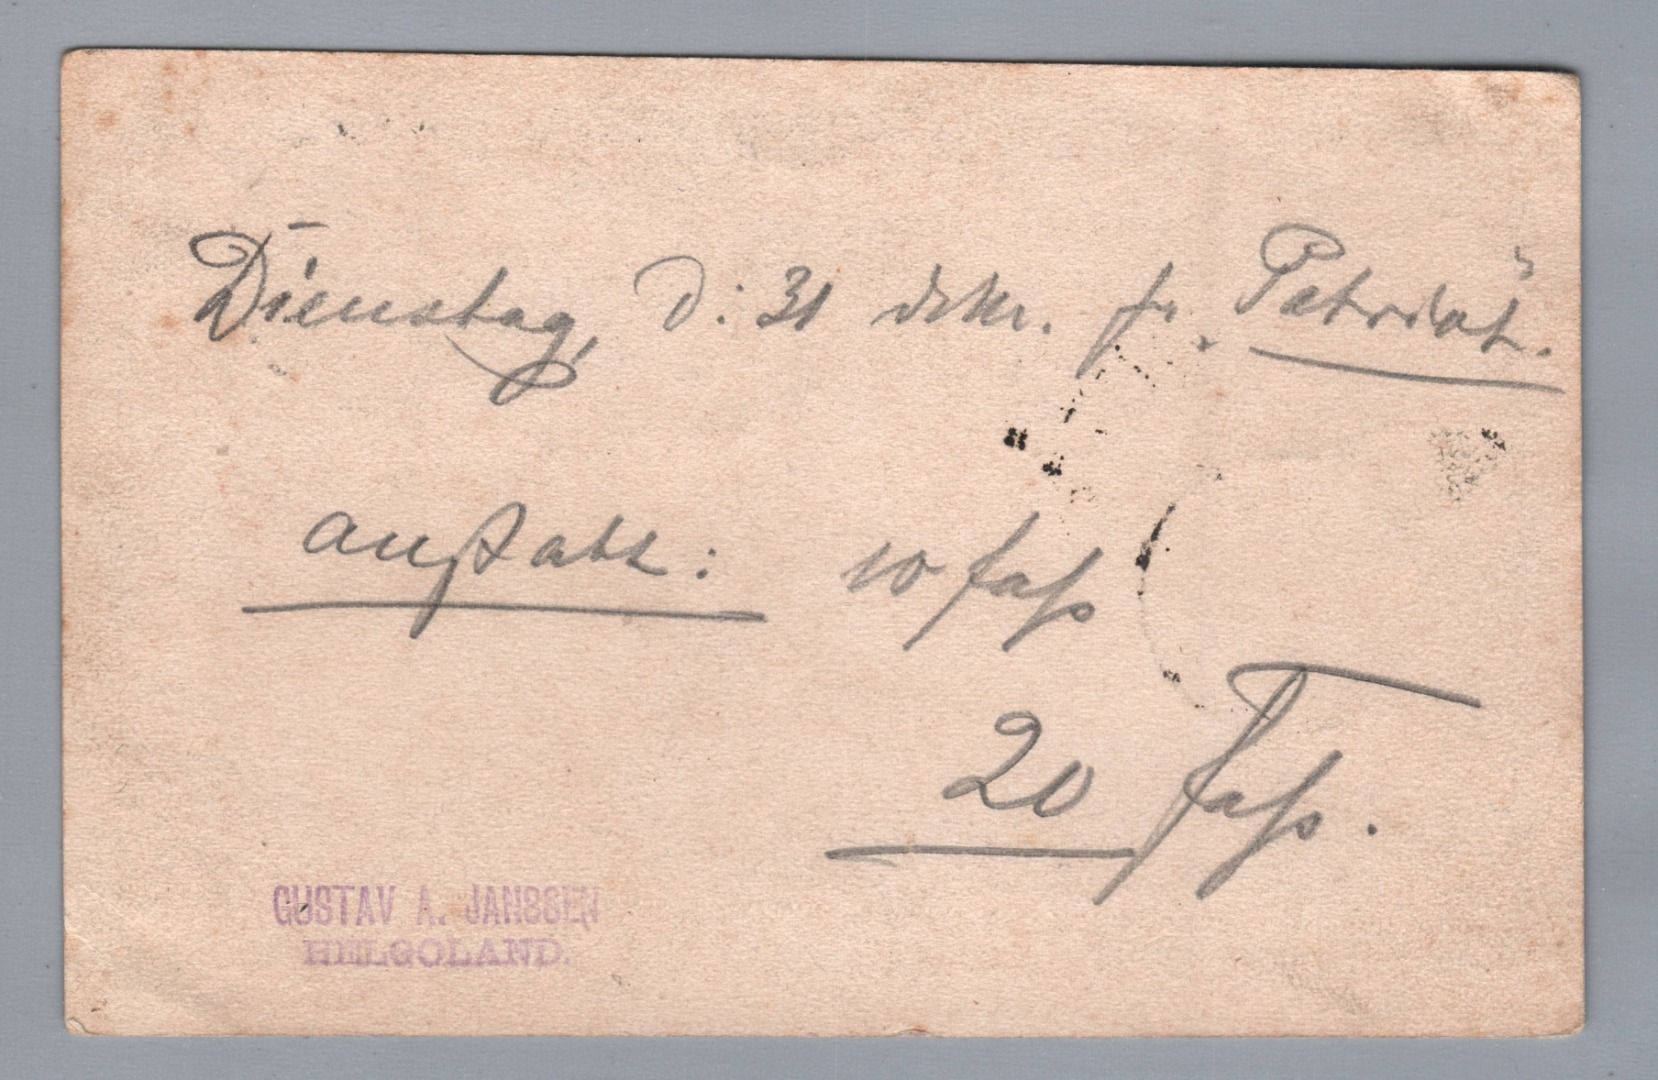 Dienstag, d: 31 dskr. pr. Patriot.
anstatt: 10 fass
20 fass.
GUSTAV A. JANSSEN
HELGOLAND.